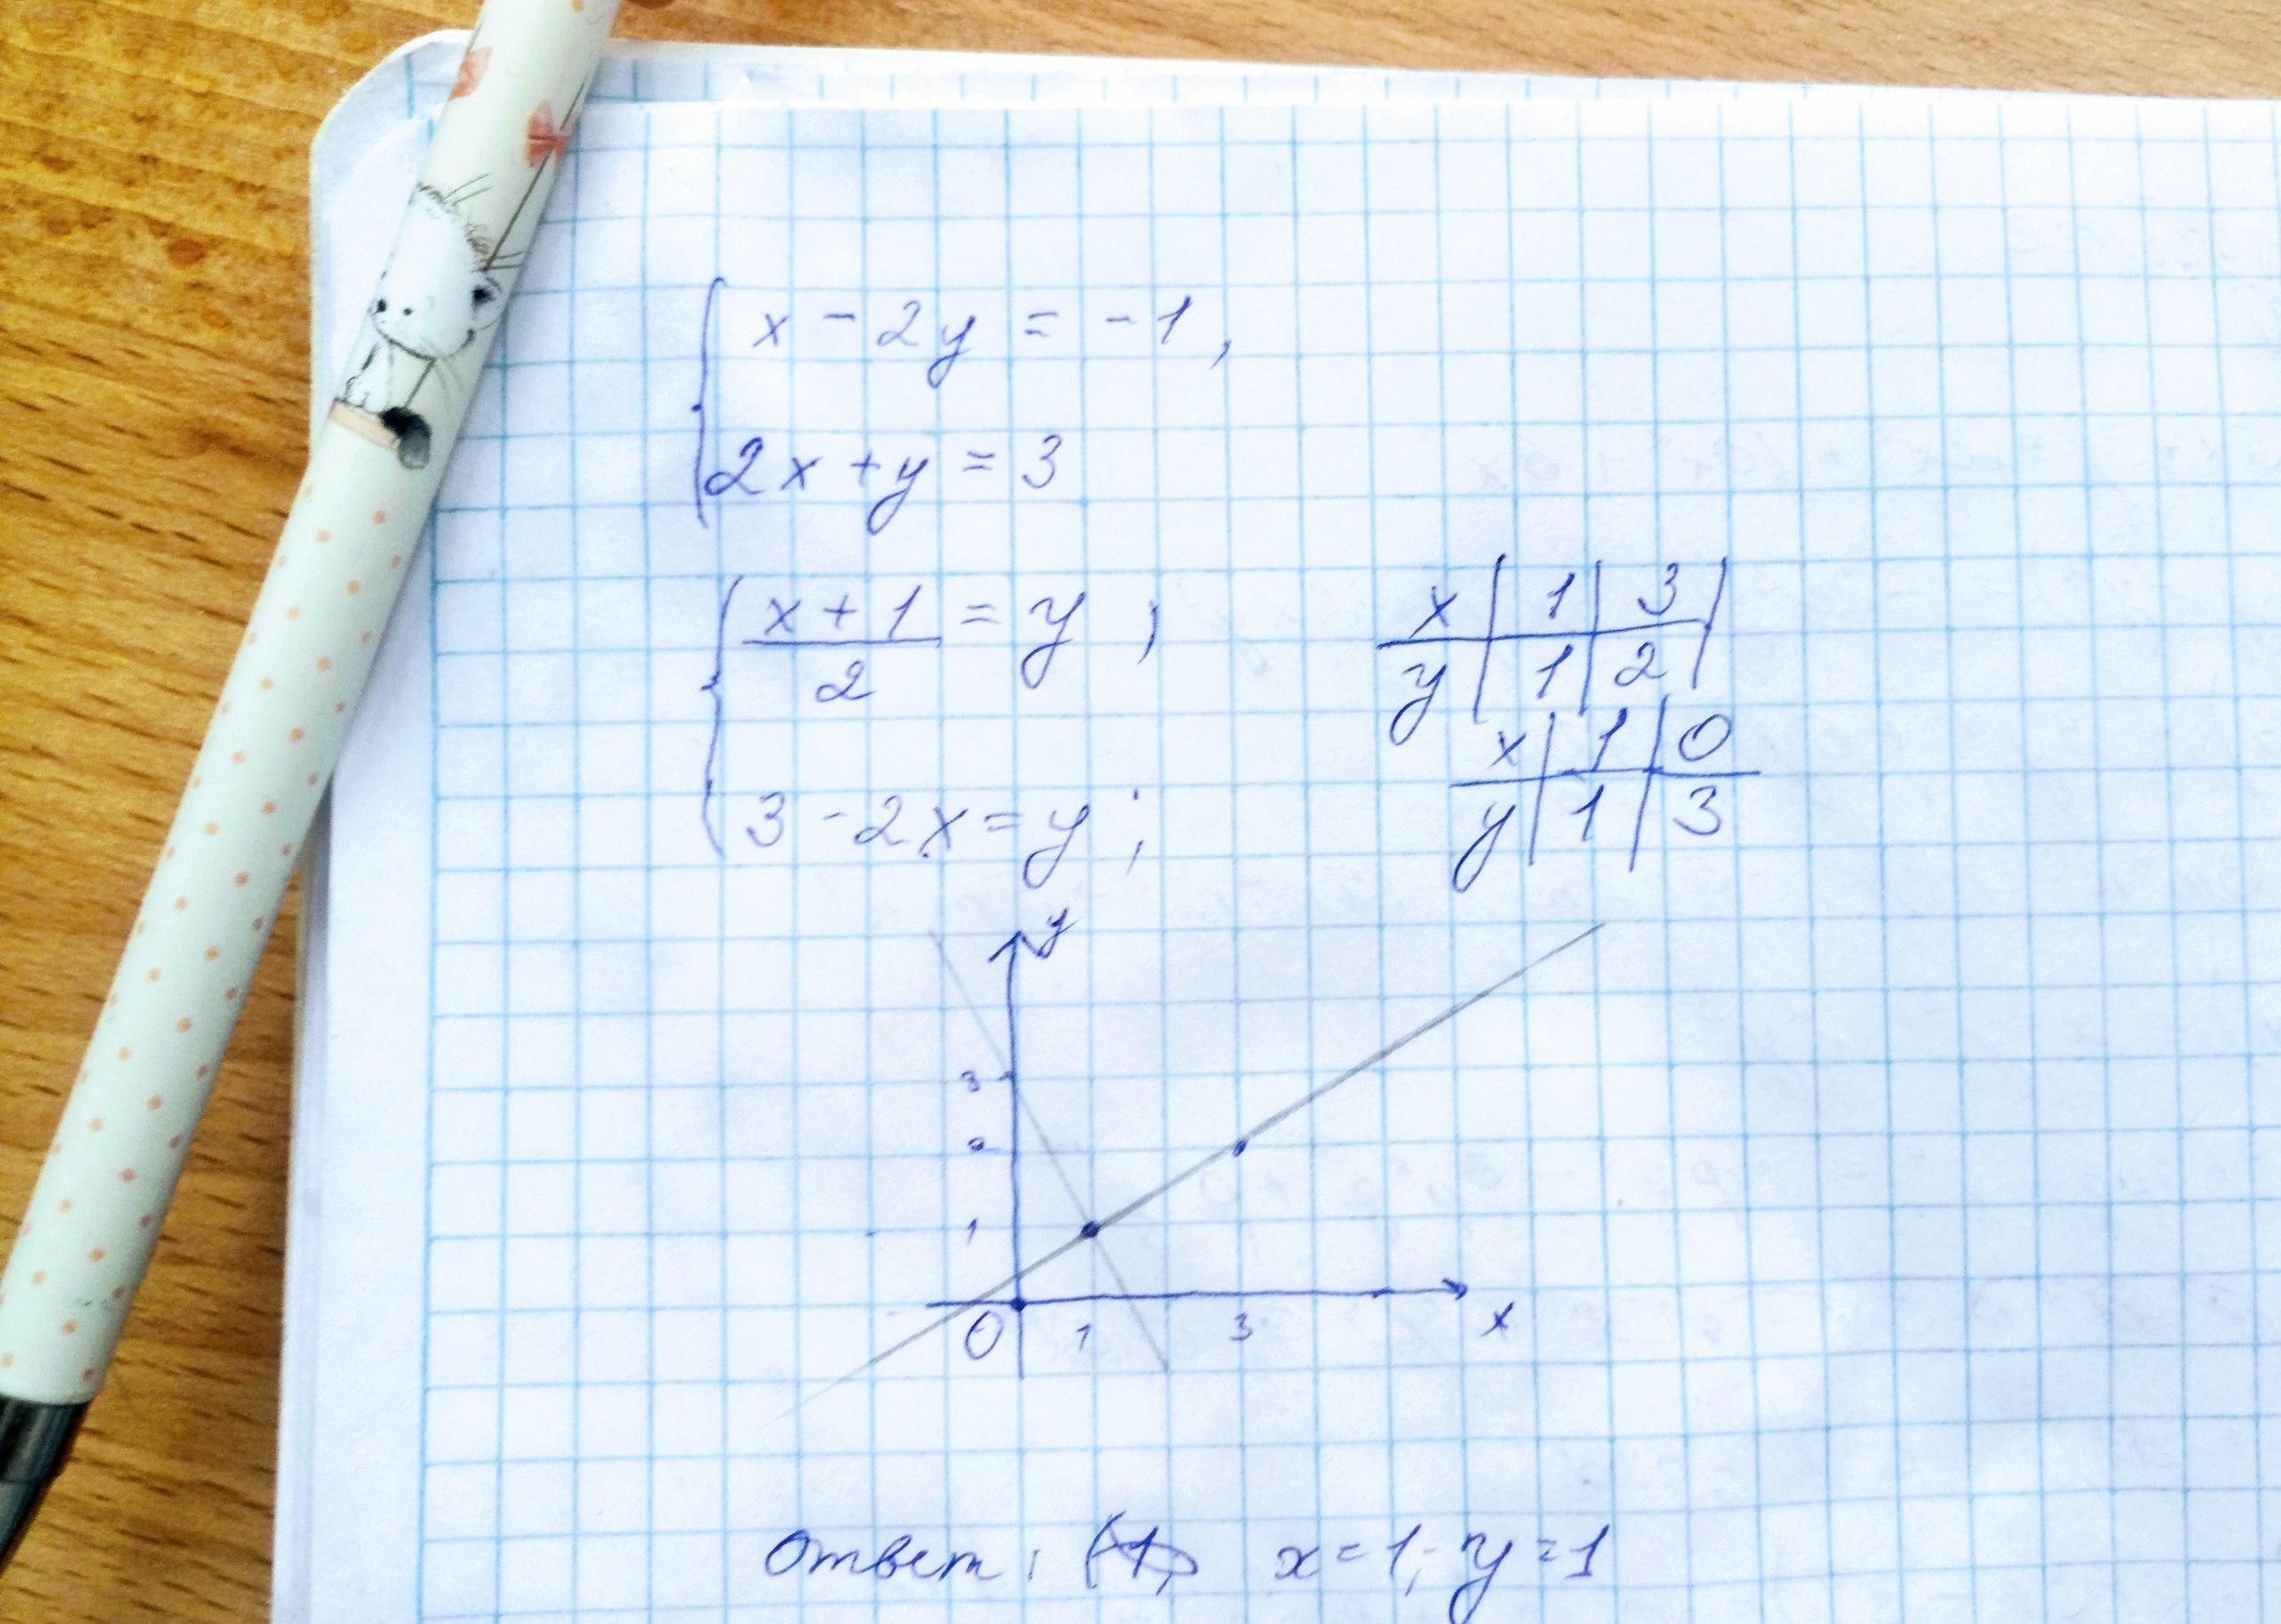 x - 2y = -1,
2x + y = 3
x + 1 = y ;
2
x 1 3
y 1 2
x 1 0
y 1 3
3 - 2x = y ;
y
3
2
1
0 1 3 x
Ответ: x = 1; y = 1